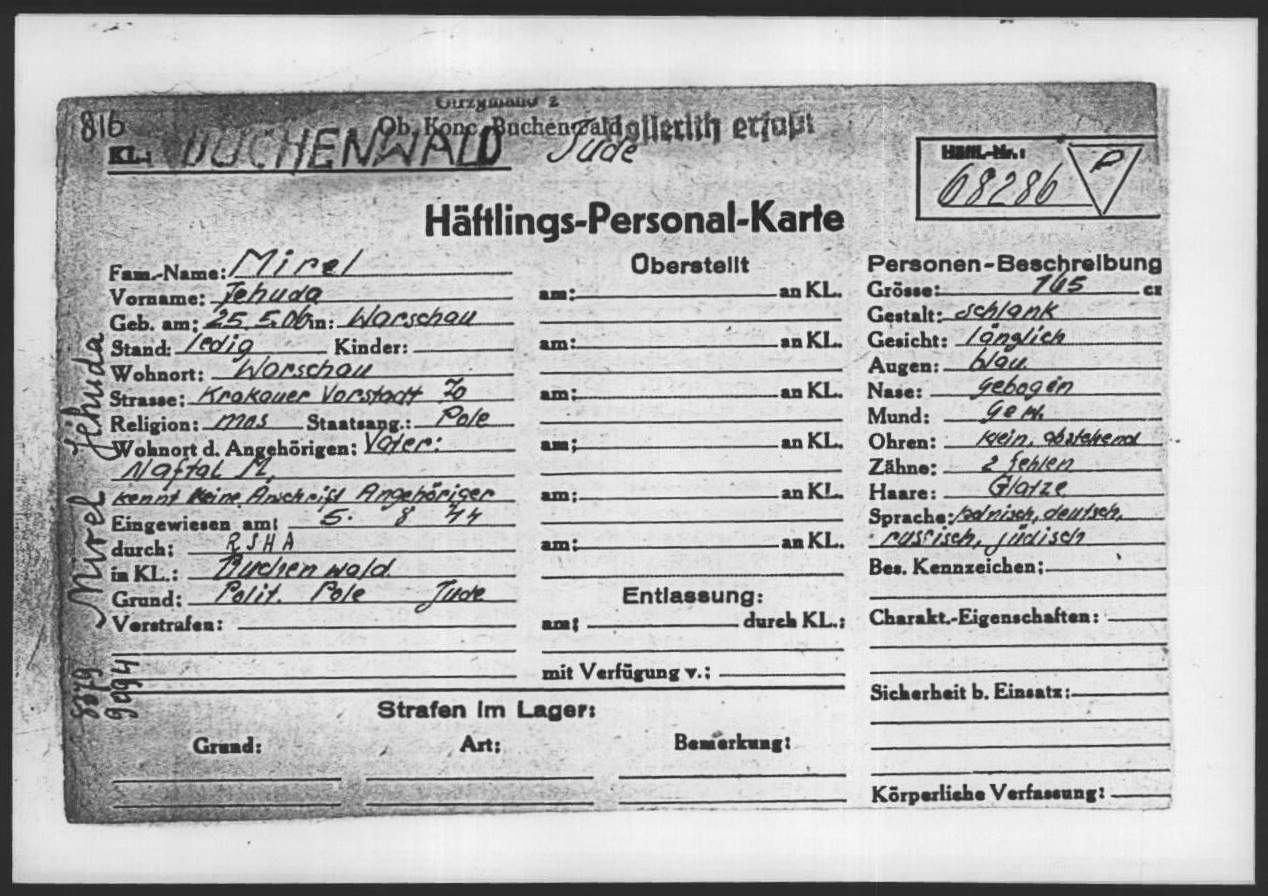 816
Ob. Konc. Buchenwald
Hollerith erfaßt
KL.: BUCHENWALD Jude
Häftl.-Nr.:
68286 P
Häftlings-Personal-Karte
Fam.-Name: Mirel
Vorname: Jehuda
Geb. am: 25.5.06 in: Warschau
Stand: ledig Kinder:
Wohnort: Warschau
Strasse: Krakauer Vorstadt 70
Religion: mos Staatsang.: Pole
Wohnort d. Angehörigen: Vater:
Naftal M.
kennt keine Anschrift Angehöriger
Eingewiesen am: 5. 8 44
durch: RSHA
in KL.: Buchenwald
Grund: Polit. Pole Jude
Vorstrafen:
Überstellt
am: an KL.
am: an KL.
am: an KL.
am: an KL.
am: an KL.
am: an KL.
Entlassung:
am: durch KL.:
mit Verfügung v.:
Personen-Beschreibung
Grösse: 165 cm
Gestalt: schlank
Gesicht: länglich
Augen: blau
Nase: gebogen
Mund: gew.
Ohren: klein, abstehend
Zähne: 2 fehlen
Haare: Glatze
Sprache: polnisch, deutsch,
russisch, jüdisch
Bes. Kennzeichen:
Charakt.-Eigenschaften:
Sicherheit b. Einsatz:
Körperliche Verfassung:
Strafen im Lager:
Grund: Art: Bemerkung:
Mirel Jehuda
8879
9094